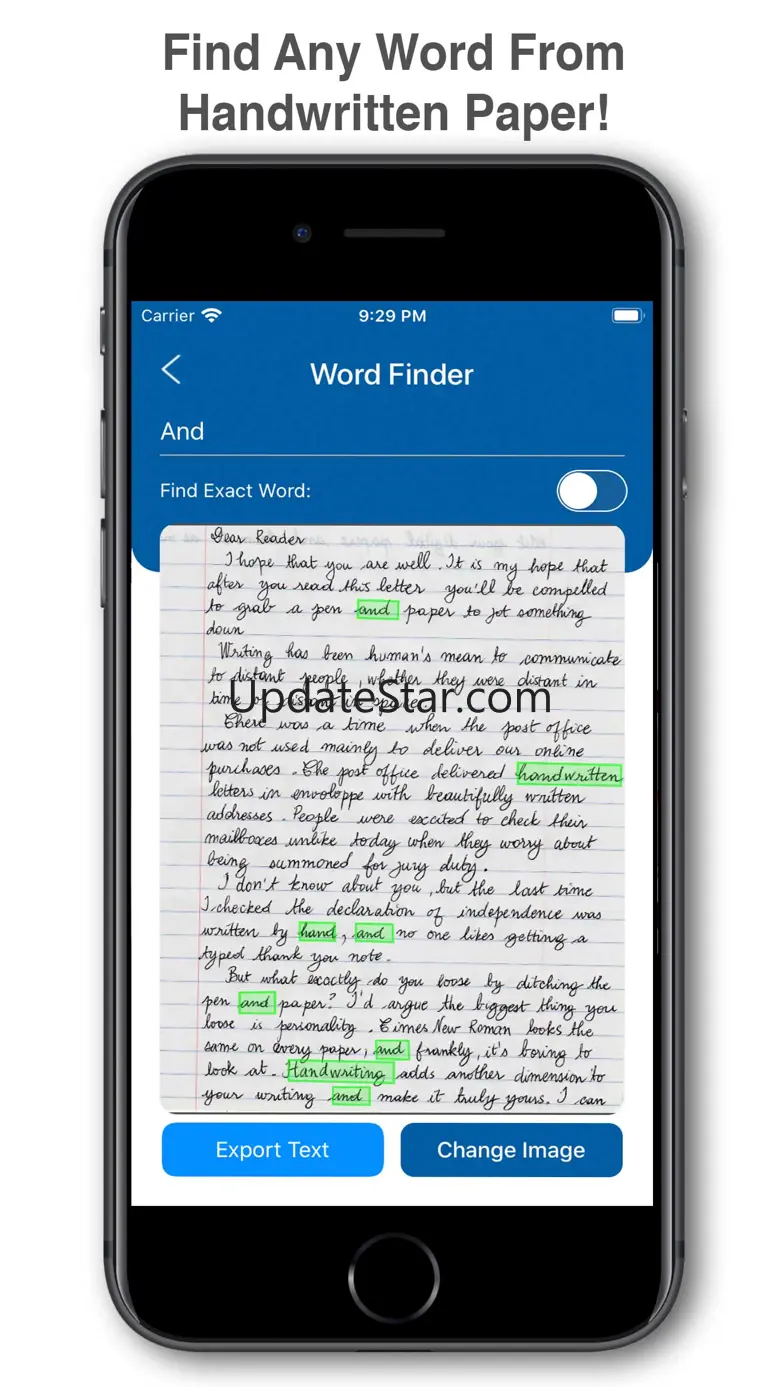 Find Any Word From
Handwritten Paper!
Carrier
9:29 PM
Word Finder
And
Find Exact Word:
Dear Reader
I hope that you are well. It is my hope that
after you read this letter you'll be compelled
to grab a pen and paper to jot something
down
Writing has been human's mean to communicate
to distant people, whether they were distant in
time or distant in space.
UpdateStar.com
There was a time when the post office
was not used mainly to deliver our online
purchases. The post office delivered handwritten
letters in envoloppe with beautifully written
addresses. People were excited to check their
mailboxes unlike today when they worry about
being summoned for jury duty.
I don't know about you, but the last time
I checked the declaration of independence was
written by hand, and no one likes getting a
typed thank you note.
But what exactly do you loose by ditching the
pen and paper? I'd argue the biggest thing you
loose is personality. Times New Roman looks the
same on every paper, and frankly, it's boring to
look at. Handwriting adds another dimension to
your writing and make it truly yours. I can
Export Text
Change Image